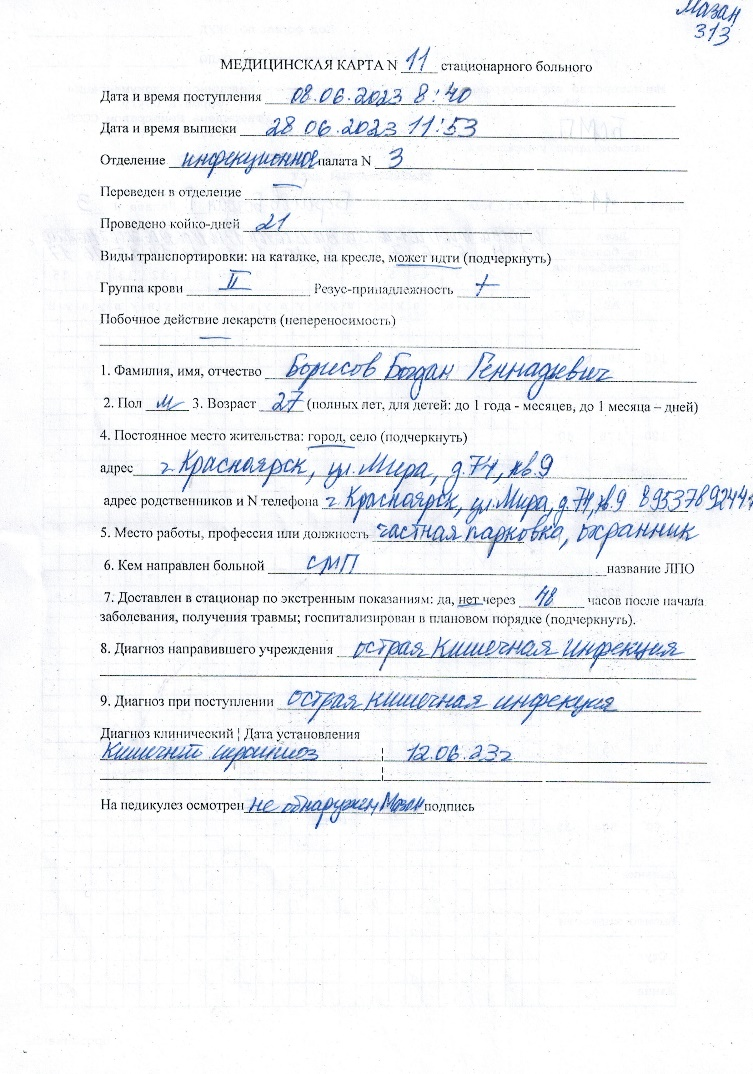 Мазан
313
МЕДИЦИНСКАЯ КАРТА N 11 стационарного больного
Дата и время поступления 08.06.2023 8:40
Дата и время выписки 28 06.2023 11:53
Отделение инфекционное палата N 3
Переведен в отделение —
Проведено койко-дней 21
Виды транспортировки: на каталке, на кресле, может идти (подчеркнуть)
Группа крови II Резус-принадлежность +
Побочное действие лекарств (непереносимость)
—
1. Фамилия, имя, отчество Борисов Богдан Геннадьевич
2. Пол м 3. Возраст 27 (полных лет, для детей: до 1 года - месяцев, до 1 месяца – дней)
4. Постоянное место жительства: город, село (подчеркнуть)
адрес г Красноярск, ул. Мира, д.74, кв.9
адрес родственников и N телефона г. Красноярск, ул. Мира, д.74, кв.9
5. Место работы, профессия или должность частная парковка, охранник
6. Кем направлен больной СМП название ЛПО
7. Доставлен в стационар по экстренным показаниям: да, нет через 48 часов после начала
заболевания, получения травмы; госпитализирован в плановом порядке (подчеркнуть).
8. Диагноз направившего учреждения острая кишечная инфекция
9. Диагноз при поступлении острая кишечная инфекция
Диагноз клинический ¦ Дата установления
Кишечный 12.06.23г
На педикулез осмотрен не обнаружен Мазан подпись